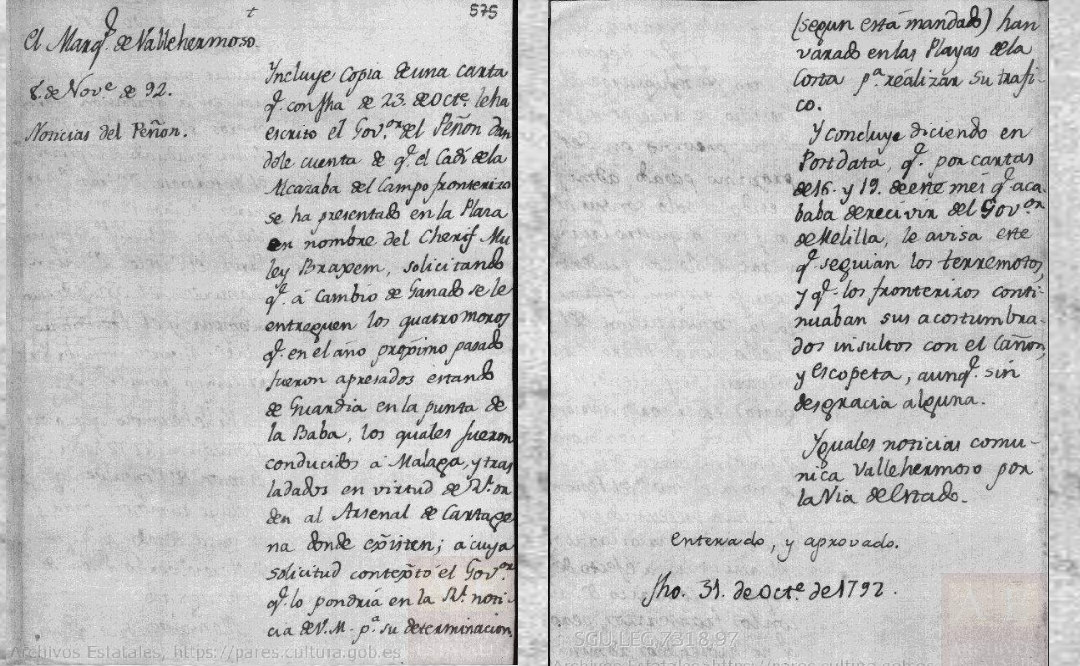 575
El Marq.ˢ de Vallehermoso.
8. de Nov.ᵉ de 92.
Noticias del Peñon.
Yncluye Copia de una carta
q.ᵉ con fha de 23. de Oct.ᵉ le ha
escrito el Gov.ᵒʳ del Peñon dan
dole cuenta de q.ᵉ el Cadi de la
Alcazaba del Campo fronterizo
se ha presentado en la Plaza
en nombre del Cherif Mu
ley Braxem, solicitando
q.ᵉ á Cambio de Ganado se le
entreguen los quatro moros
q.ᵉ en el año proximo pasado
fueron apresados estando
de Guardia en la punta de
la Baba, los quales fueron
conducidos á Malaga, y tras
ladados en virtud de R.ˡ or
den al Arsenal de Cartage
na donde existen; á cuya
solicitud contextó el Gov.ᵒʳ
q.ᵉ lo pondria en la R.ˡ noti-
cia de V.M. p.ᵃ su determinacion,
(segun está mandado) han
varado en las Playas de la
Costa p.ᵃ realizar su trafi-
co.
Y concluye diciendo en
Postdata, q.ᵉ por cartas
de 16. y 19. de este mes q.ᵉ aca-
baba de recivir del Gov.ᵒʳ
de Melilla, le avisa este
q.ᵉ seguian los terremotos,
y q.ᵉ los fronterizos conti-
nuaban sus acostumbra-
dos insultos con el Cañon,
y escopeta, aunq.ᵉ sin
desgracia alguna.
Yguales noticias comu-
nica Vallehermoso por
la Via de Estado.
Enterado, y aprovado.
fho. 31. de Oct.ᵉ de 1792.
SGU,LEG,7318,97
Archivos Estatales, https://pares.cultura.gob.es
Archivos Estatales, https://pares.cultura.gob.es